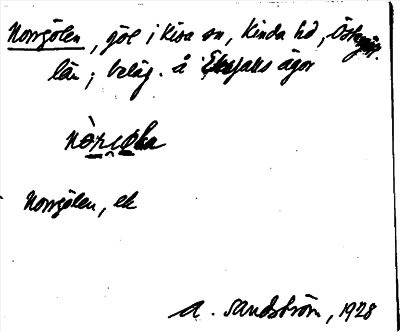 Norrgölen, göl i Kisa sn, Kinda hd, Östergötl.
län; beläg. å Ekefalls ägor
Norrgölen, ek
A. Sandström, 1928